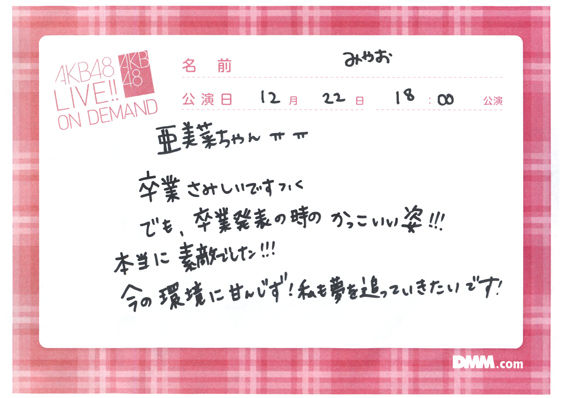 AKB48
LIVE!!
ON DEMAND
AKB
48
名前 みやお
公演日 12月 22日 18:00 公演
亜美菜ちゃん ㅠㅠ
卒業さみしいですっく
でも、卒業発表の時のかっこいい姿!!!
本当に素敵でした!!!
今の環境に甘んじず!私も夢を追っていきたいです!
DMM.com